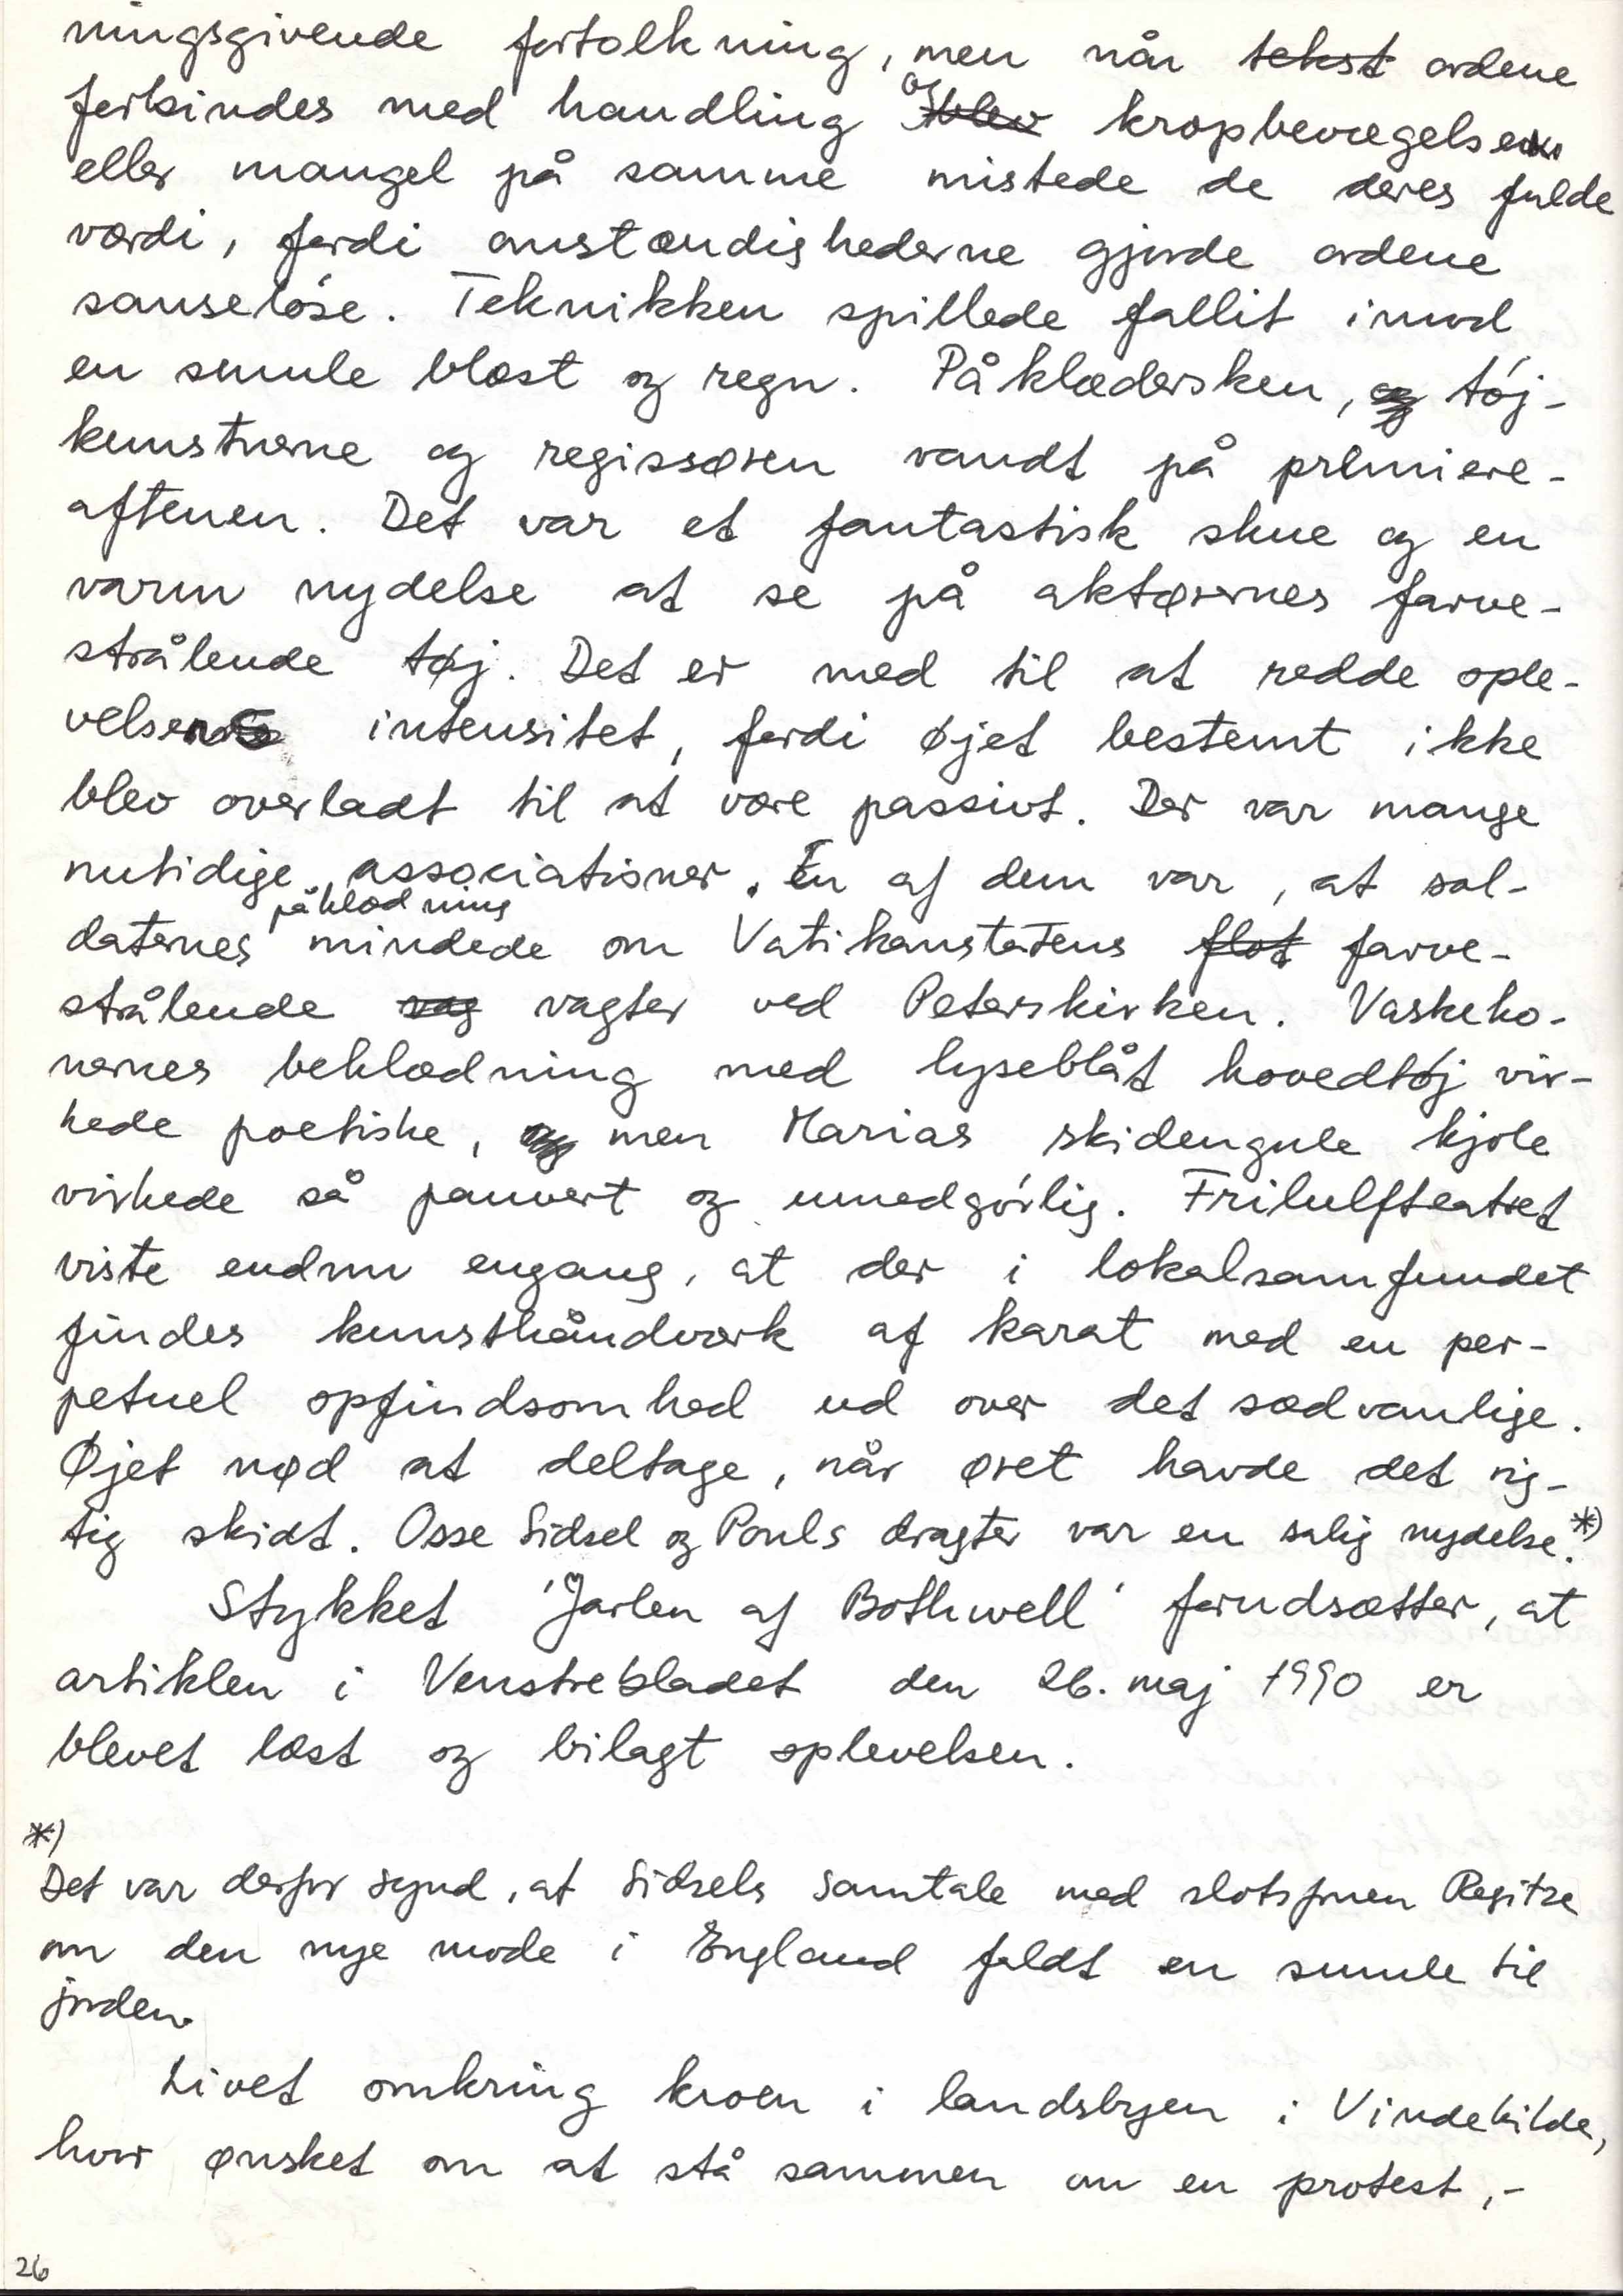 ningsgivende fortolkning, men når ~~tekst~~ ordene
forbindes med handling og ~~blev~~ kropbevægelsen
eller mangel på samme mistede de deres fulde
værdi, fordi omstændighederne gjorde ordene
sanseløse. Teknikken spillede fallit imod
en smule blæst og regn. Påklædersken, ~~og~~ tøj-
kunstnerne og regissøren vandt på premiere-
aftenen. Det var et fantastisk skue og en
varm nydelse at se på aktørernes farve-
strålende tøj. Det er med til at redde ople-
velsens intensitet, fordi øjet bestemt ikke
blev overladt til at være passivt. Der var mange
nutidige associationer. En af dem var, at sol-
daternes påklædning mindede om Vatikanstatens ~~flot~~ farve-
strålende ~~vag~~ vagter ved Peterskirken. Vaskeko-
nernes beklædning med lyseblåt hovedtøj vir-
kede poetiske, ~~og~~ men Marias skidengule kjole
virkede så pauvert og umedgørlig. Frilulfteatret
viste endnu engang, at der i lokalsamfundet
findes kunsthåndværk af karat med en per-
petuel opfindsomhed ud over det sædvanlige.
Øjet nød at deltage, når øret havde det rig-
tig skidt. Osse Sidsel og Pouls dragter var en salig nydelse.*)
Stykket 'Jarlen af Bothwell' forudsætter, at
artiklen i Venstrebladet den 26. maj 1990 er
blevet læst og bilagt oplevelsen.
*)
Det var derfor synd, at Sidsels samtale med slotsfruen Regitze
om den nye mode i England faldt en smule til
jorden.
Livet omkring kroen i landsbyen i Vindekilde,
hvor ønsket om at stå sammen om en protest,-
26